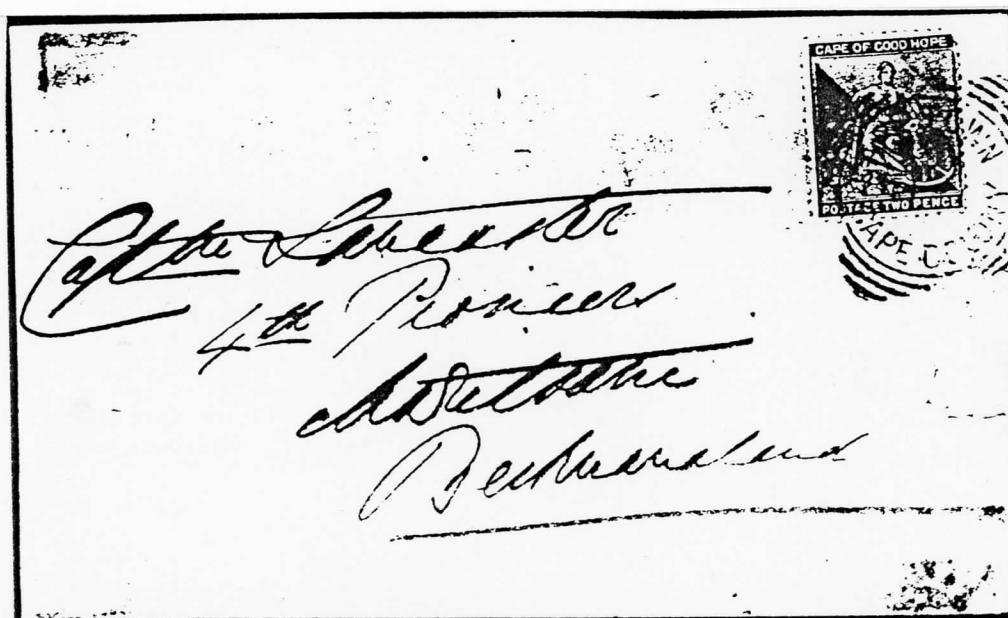 CAPE OF GOOD HOPE
POSTAGE TWO PENCE
CAPE COLONY
Lancaster
4th Pioneers
Bechuanaland